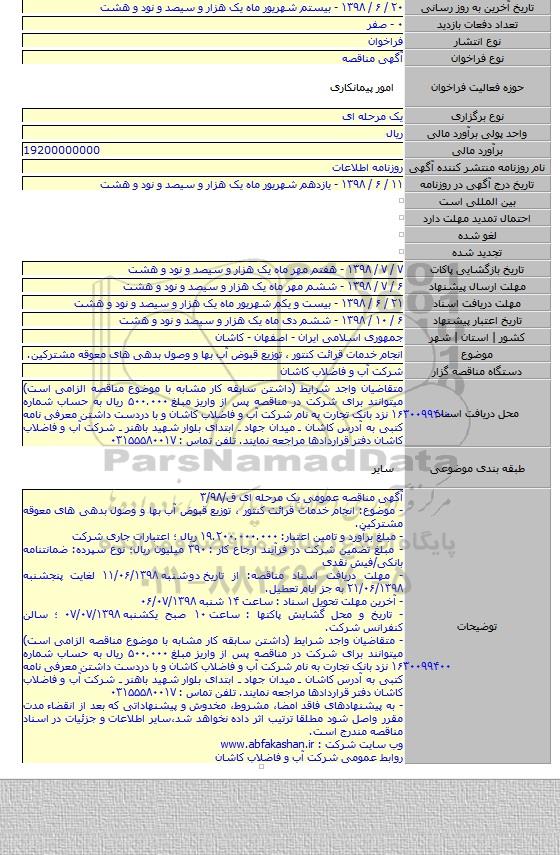 تاریخ آخرین به روز رسانی	۲۰ / ۶ / ۱۳۹۸ - بیستم شهریور ماه یک هزار و سیصد و نود و هشت
تعداد دفعات بازدید	۰ - صفر
نوع انتشار	فراخوان
نوع فراخوان	آگهی مناقصه
حوزه فعالیت فراخوان	امور پیمانکاری
نوع برگزاری	یک مرحله ای
واحد پولی برآورد مالی	ریال
برآورد مالی	19200000000
نام روزنامه منتشر کننده آگهی	روزنامه اطلاعات
تاریخ درج آگهی در روزنامه	۱۱ / ۶ / ۱۳۹۸ - یازدهم شهریور ماه یک هزار و سیصد و نود و هشت
بین المللی است
احتمال تمدید مهلت دارد
لغو شده
تجدید شده
تاریخ بازگشایی پاکات	۷ / ۷ / ۱۳۹۸ - هفتم مهر ماه یک هزار و سیصد و نود و هشت
مهلت ارسال پیشنهاد	۶ / ۷ / ۱۳۹۸ - ششم مهر ماه یک هزار و سیصد و نود و هشت
مهلت دریافت اسناد	۲۱ / ۶ / ۱۳۹۸ - بیست و یکم شهریور ماه یک هزار و سیصد و نود و هشت
تاریخ اعتبار پیشنهاد	۶ / ۱۰ / ۱۳۹۸ - ششم دی ماه یک هزار و سیصد و نود و هشت
کشور | استان | شهر	جمهوری اسلامی ایران - اصفهان - کاشان
موضوع	انجام خدمات قرائت کنتور ، توزیع قبوض آب بها و وصول بدهی های معوقه مشترکین.
دستگاه مناقصه گزار	شرکت آب و فاضلاب کاشان
محل دریافت اسناد
متقاضیان واجد شرایط (داشتن سابقه کار مشابه با موضوع مناقصه الزامی است)
میتوانند برای شرکت در مناقصه پس از واریز مبلغ ۵۰۰.۰۰۰ ریال به حساب شماره
۱۶۳۰۰۹۹۴۰۰ نزد بانک تجارت به نام شرکت آب و فاضلاب کاشان و با دردست داشتن معرفی نامه
کتبی به آدرس کاشان ـ میدان جهاد ـ ابتدای بلوار شهید باهنر ـ شرکت آب و فاضلاب
کاشان دفتر قراردادها مراجعه نمایند. تلفن تماس : ۰۳۱۵۵۵۸۰۰۱۷
طبقه بندی موضوعی	سایر
ParsNamadData
توضیحات
آگهی مناقصه عمومی یک مرحله ای ق/۳/۹۸
- موضوع: انجام خدمات قرائت کنتور ، توزیع قبوض آب بها و وصول بدهی های معوقه
مشترکین.
- مبلغ برآورد و تامین اعتبار: ۱۹.۲۰۰.۰۰۰.۰۰۰ ریال ؛ اعتبارات جاری شرکت
- مبلغ تضمین شرکت در فرآیند ارجاع کار : ۳۹۰ میلیون ریال؛ نوع سپرده: ضمانتنامه
بانکی/فیش نقدی
- مهلت دریافت اسناد مناقصه: از تاریخ دوشنبه ۱۱/۰۶/۱۳۹۸ لغایت پنجشنبه
۲۱/۰۶/۱۳۹۸ به جز ایام تعطیل.
- آخرین مهلت تحویل اسناد : ساعت ۱۴ شنبه ۰۶/۰۷/۱۳۹۸
- تاریخ و محل گشایش پاکتها : ساعت ۱۰ صبح یکشنبه ۰۷/۰۷/۱۳۹۸ ؛ سالن
کنفرانس شرکت.
- متقاضیان واجد شرایط (داشتن سابقه کار مشابه با موضوع مناقصه الزامی است)
میتوانند برای شرکت در مناقصه پس از واریز مبلغ ۵۰۰.۰۰۰ ریال به حساب شماره
۱۶۳۰۰۹۹۴۰۰ نزد بانک تجارت به نام شرکت آب و فاضلاب کاشان و با دردست داشتن معرفی نامه
کتبی به آدرس کاشان ـ میدان جهاد ـ ابتدای بلوار شهید باهنر ـ شرکت آب و فاضلاب
کاشان دفتر قراردادها مراجعه نمایند. تلفن تماس : ۰۳۱۵۵۵۸۰۰۱۷
- به پیشنهادهای فاقد امضا، مشروط، مخدوش و پیشنهاداتی که بعد از انقضاء مدت
مقرر واصل شود مطلقا ترتیب اثر داده نخواهد شد،سایر اطلاعات و جزئیات در اسناد
مناقصه مندرج است.
وب سایت شرکت : www.abfakashan.ir
روابط عمومی شرکت آب و فاضلاب کاشان